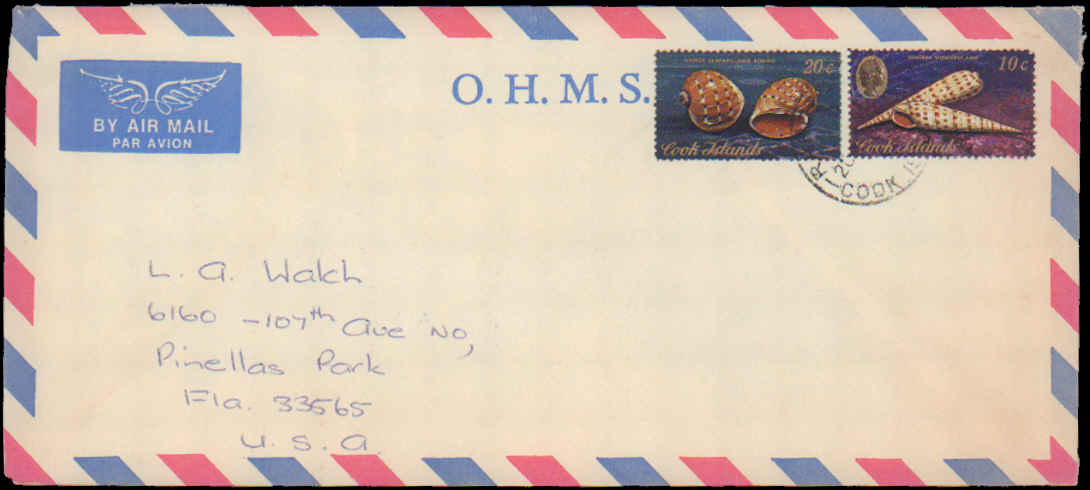 O. H. M. S.
BY AIR MAIL
PAR AVION
20c
Cook Islands
10c
Cook Islands
COOK IS
L. A. Walch
6160 -107th Ave No,
Pinellas Park
Fla. 33565
U.S.A